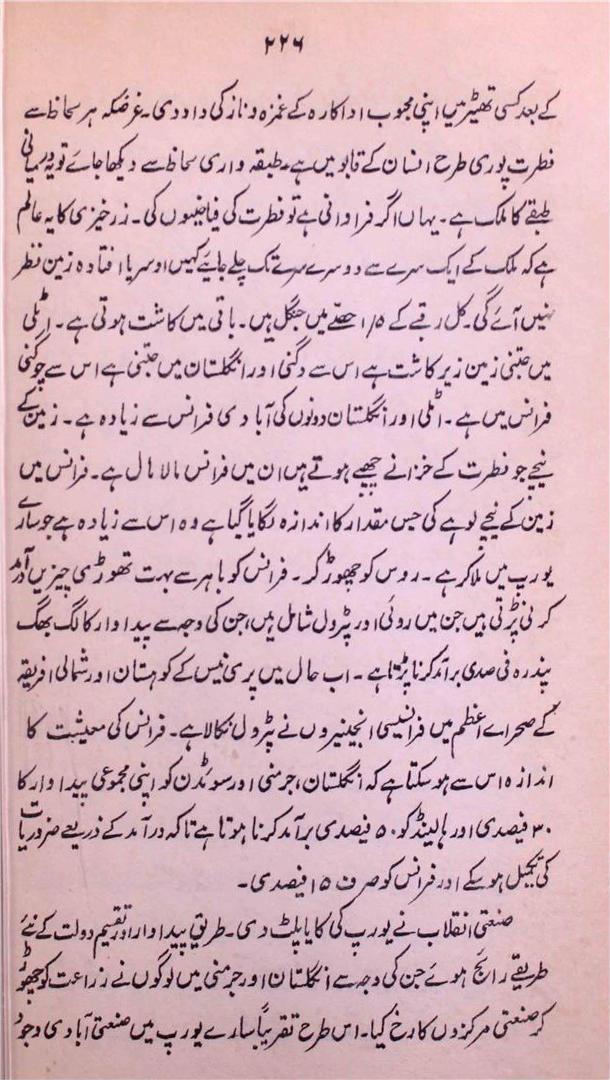 ۲۲۶
کے بعد کسی تھیٹر میں اپنی محبوب اداکارہ کے غمزہ و ناز کی داد دی۔ غرضکہ ہر لحاظ سے
فطرت پوری طرح انسان کے قابو میں ہے۔ طبقہ واری لحاظ سے دیکھا جائے تو یہ درمیانی
طبقے کا ملک ہے۔ یہاں اگر فراوانی ہے تو فطرت کی فیاضیوں کی۔ زرخیزی کا یہ عالم
ہے کہ ملک کے ایک سرے سے دوسرے سرے تک چلے جایئے کہیں اوسر یا افتادہ زمین نظر
نہیں آئے گی۔ کل رقبے کے ۱/۵ حصے میں جنگل ہیں۔ باقی میں کاشت ہوتی ہے۔ اٹلی
میں جتنی زمین زیر کاشت ہے اس سے دگنی اور انگلستان میں جتنی ہے اس سے چوگنی
فرانس میں ہے۔ اٹلی اور انگلستان دونوں کی آبادی فرانس سے زیادہ ہے۔ زمین کے
نیچے جو فطرت کے خزانے چھپے ہوتے ہیں ان میں فرانس مالامال ہے۔ فرانس میں
زمین کے نیچے لوہے کی جس مقدار کا اندازہ لگایا گیا ہے وہ اس سے زیادہ ہے جو سارے
یورپ میں ملا کر ہے۔ روس کو چھوڑ کر۔ فرانس کو باہر سے بہت تھوڑی چیزیں درآمد
کرنی پڑتی ہیں جن میں روئی اور پٹرول شامل ہیں، جن کی وجہ سے پیداوار کا لگ بھگ
پندرہ فی صدی برآمد کرنا پڑتا ہے۔ اب حال میں پری نیس کے کوہستان اور شمالی افریقہ
کے صحرائے اعظم میں فرانسیسی انجینیروں نے پٹرول نکالا ہے۔ فرانس کی معیشت کا
اندازہ اس سے ہو سکتا ہے کہ انگلستان، جرمنی اور سوئڈن کو اپنی مجموعی پیداوار کا
۳۰ فیصدی اور ہالینڈ کو ۵۰ فیصدی برآمد کرنا ہوتا ہے تاکہ درآمد کے ذریعے ضروریات
کی تکمیل ہو سکے اور فرانس کو صرف ۱۵ فیصدی۔
صنعتی انقلاب نے یورپ کی کایا پلٹ دی۔ طریق پیداوار اور تقسیم دولت کے نئے
طریقے رائج ہوئے جن کی وجہ سے انگلستان اور جرمنی میں لوگوں نے زراعت کو چھوڑ
کر صنعتی مرکزوں کا رخ کیا۔ اس طرح تقریباً سارے یورپ میں صنعتی آبادی وجود